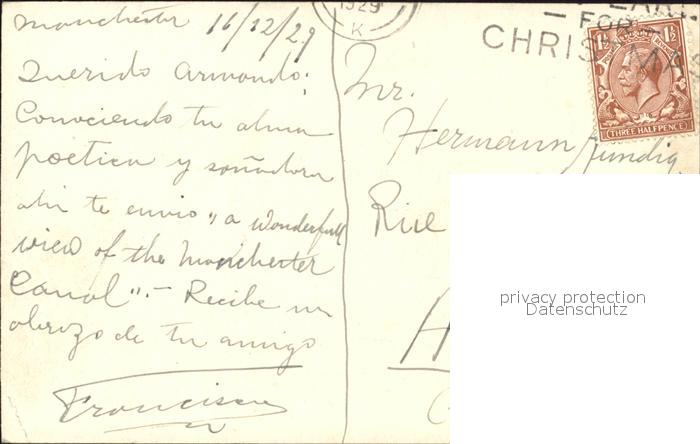 Manchester 16/12/29
Querido Armando:
Conociendo tu alma
poetica y soñadora
ahi te envio "a wonderfull
view of the Manchester
Canal".- Recibe un
abrazo de tu amigo
Francisco
1929
K
- FOR -
CHRISTMAS
THREE HALFPENCE
Mr.
Hermann
privacy protection
Datenschutz